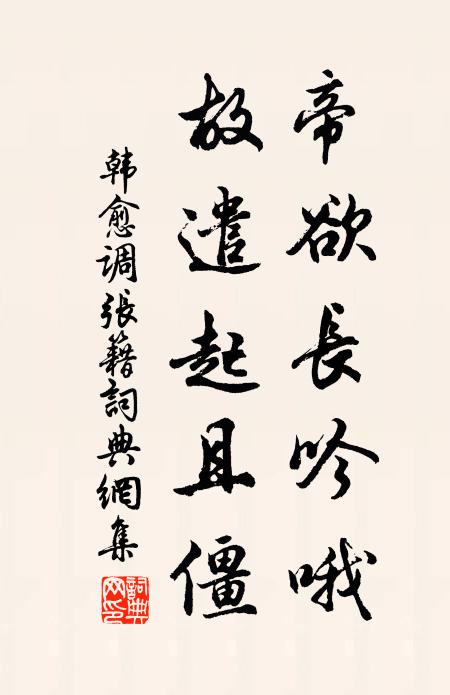 帝欲長吟哦
故遣起且僵
韩愈调張籍詞典網集
詞典网印